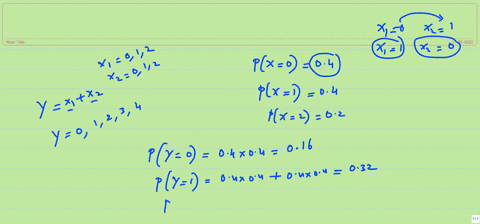 x₁=0 x₂=1
x₁=1 x₂=0
x₁=0,1,2
x₂=0,1,2
Y=x₁+x₂
Y=0,1,2,3,4
P(X=0)=0.4
P(X=1)=0.4
P(X=2)=0.2
P(Y=0)=0.4×0.4=0.16
P(Y=1)=0.4×0.4+0.4×0.4=0.32